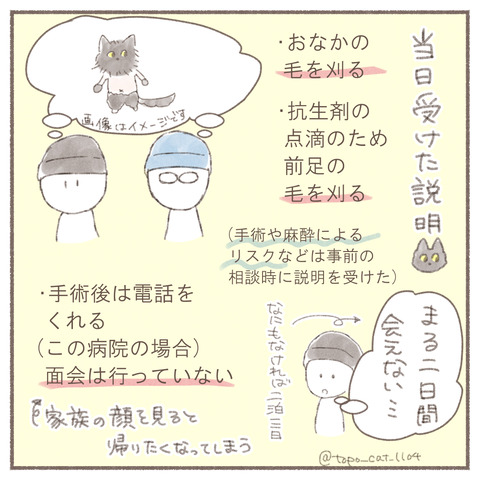 当日受けた説明
・おなかの
毛を刈る
・抗生剤の
点滴のため
前足の
毛を刈る
(手術や麻酔による
リスクなどは事前の
相談時に説明を受けた)
画像はイメージです
・手術後は電話を
くれる
(この病院の場合)
面会は行っていない
家族の顔を見ると
帰りたくなってしまう
なにもなければ二泊三日
まる二日間
会えない…
@topo_cat_1104